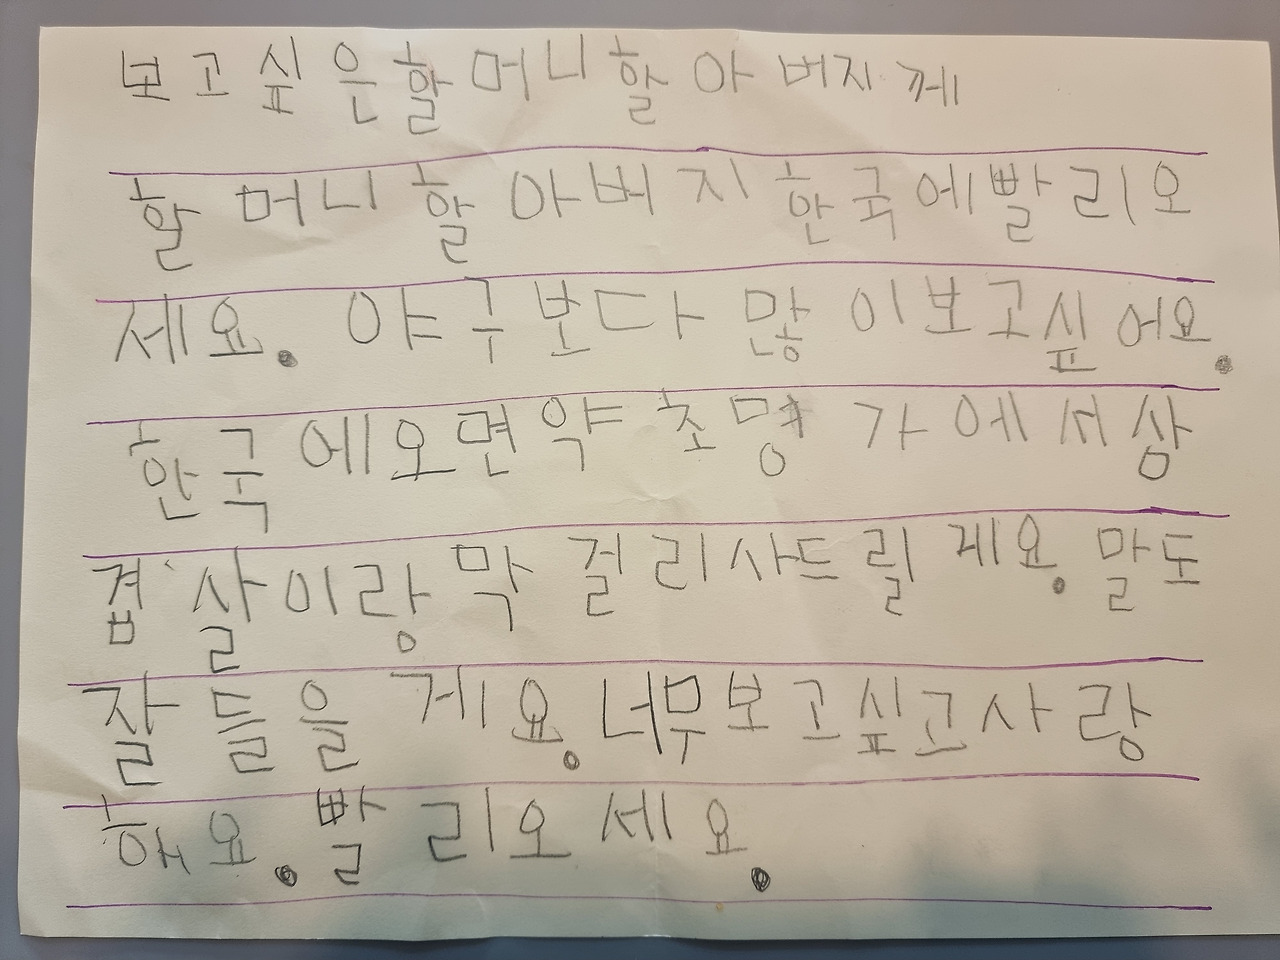 보고싶은할머니할아버지께
할머니할아버지한국에빨리오
세요. 야구보다 많이보고싶어요.
한국에오면약초명가에서삼
겹살이랑막걸리사드릴게요. 말도
잘들을게요. 너무보고싶고사랑
해요. 빨리오세요.